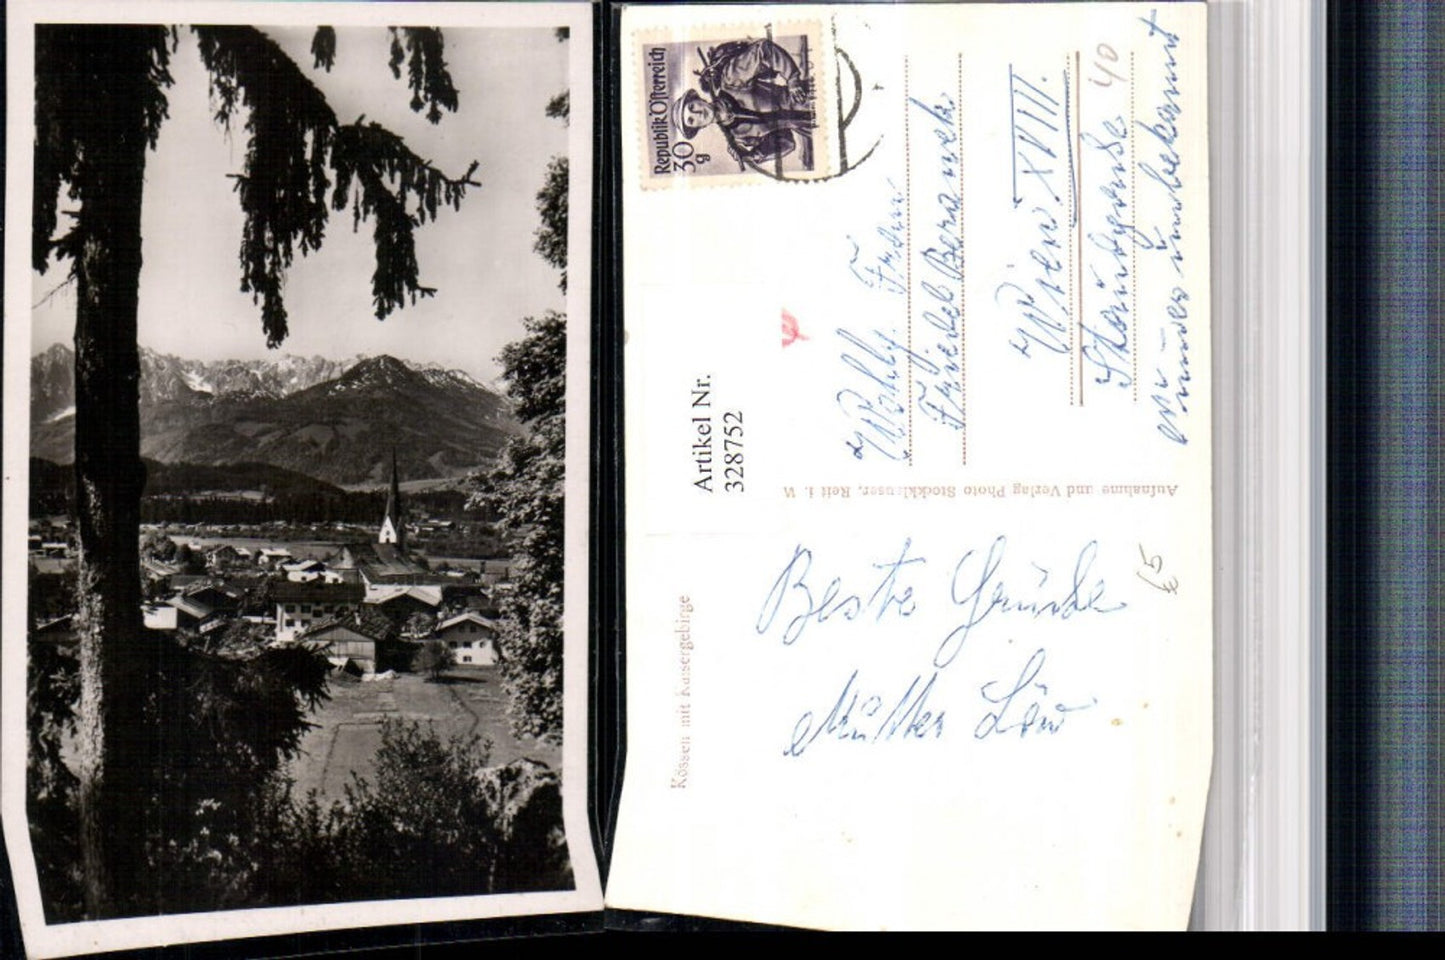 Republik Österreich
30
g
Artikel Nr.
328752
Wohlg. Frau
Friedl Beranek
Wien. XVIII.
40
Aufnahme und Verlag Photo Stockklauser, Reit i. W
Kössen mit Kaisergebirge
Beste Grüße
Mutter Löw
65